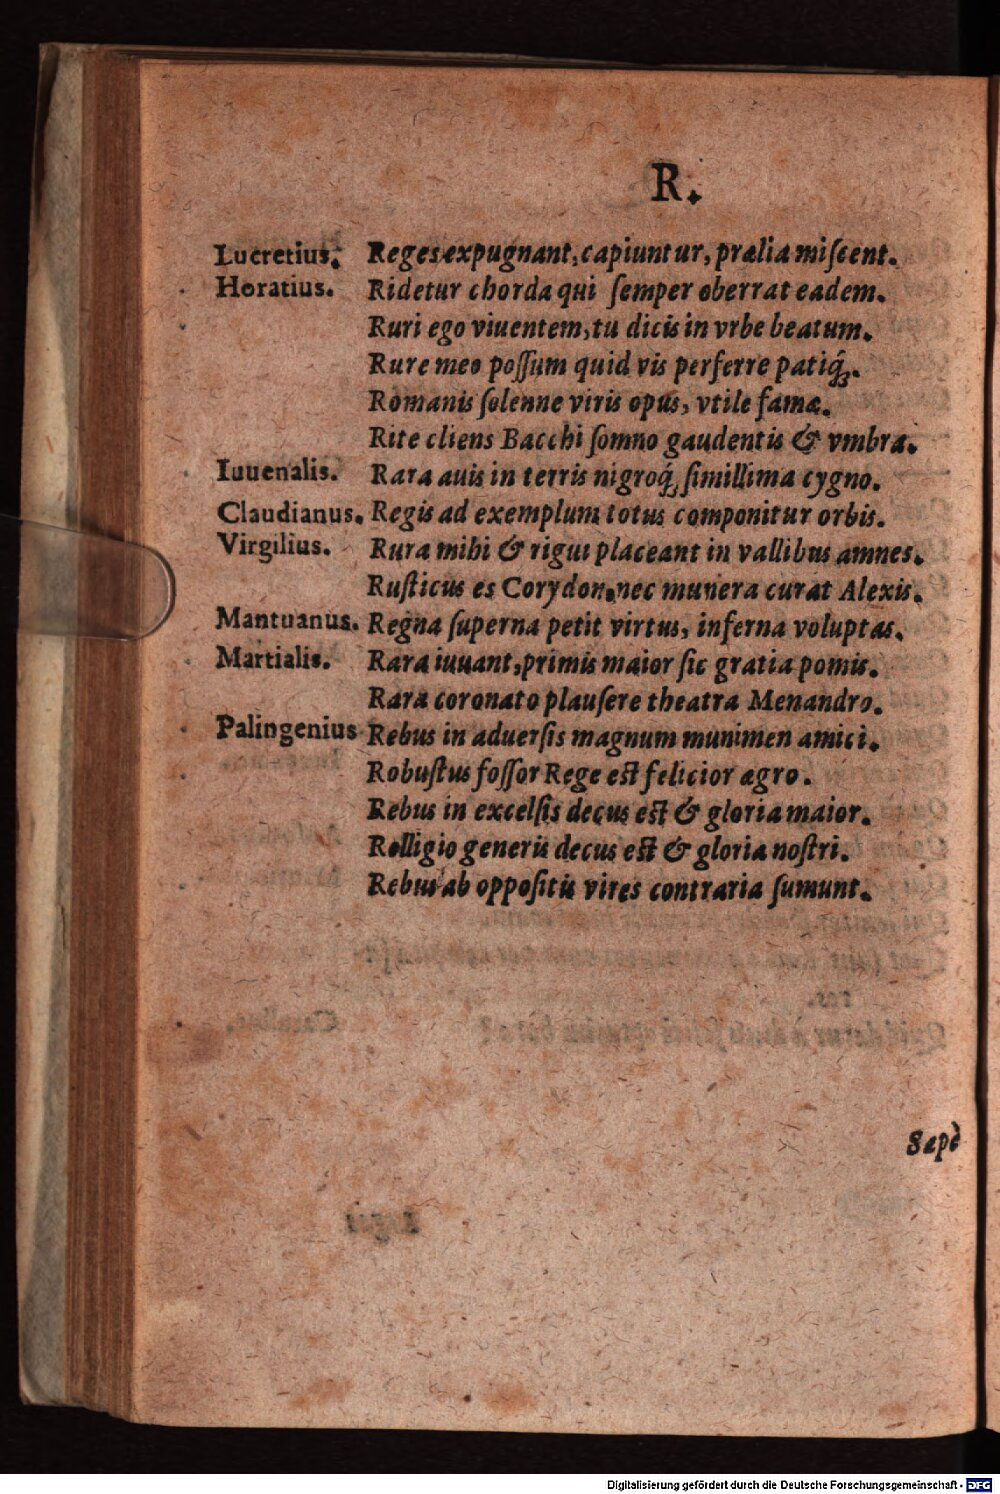 R.
Lucretius. Reges expugnant, capiuntur, prælia miſcent.
Horatius. Ridetur chorda qui ſemper oberrat eadem.
Ruri ego viuentem, tu dicis in vrbe beatum.
Rure meo poſſum quid vis perferre patiq́;.
Romanis ſolenne viris opus, vtile famæ.
Rite cliens Bacchi ſomno gaudentis & vmbra.
Iuuenalis. Rara auis in terris nigroq́; ſimillima cygno.
Claudianus. Regis ad exemplum totus componitur orbis.
Virgilius. Rura mihi & rigui placeant in vallibus amnes.
Ruſticus es Corydon, nec munera curat Alexis.
Mantuanus. Regna ſuperna petit virtus, inferna voluptas.
Martialis. Rara iuuant, primis maior ſic gratia pomis.
Rara coronato plauſere theatra Menandro.
Palingenius Rebus in aduerſis magnum munimen amici.
Robuſtus foſſor Rege eſt felicior ægro.
Rebus in excelſis decus eſt & gloria maior.
Relligio generis decus eſt & gloria noſtri.
Rebus ab oppoſitis vires contraria ſumunt.
Sæpè
Digitalisierung gefördert durch die Deutsche Forschungsgemeinschaft - DFG